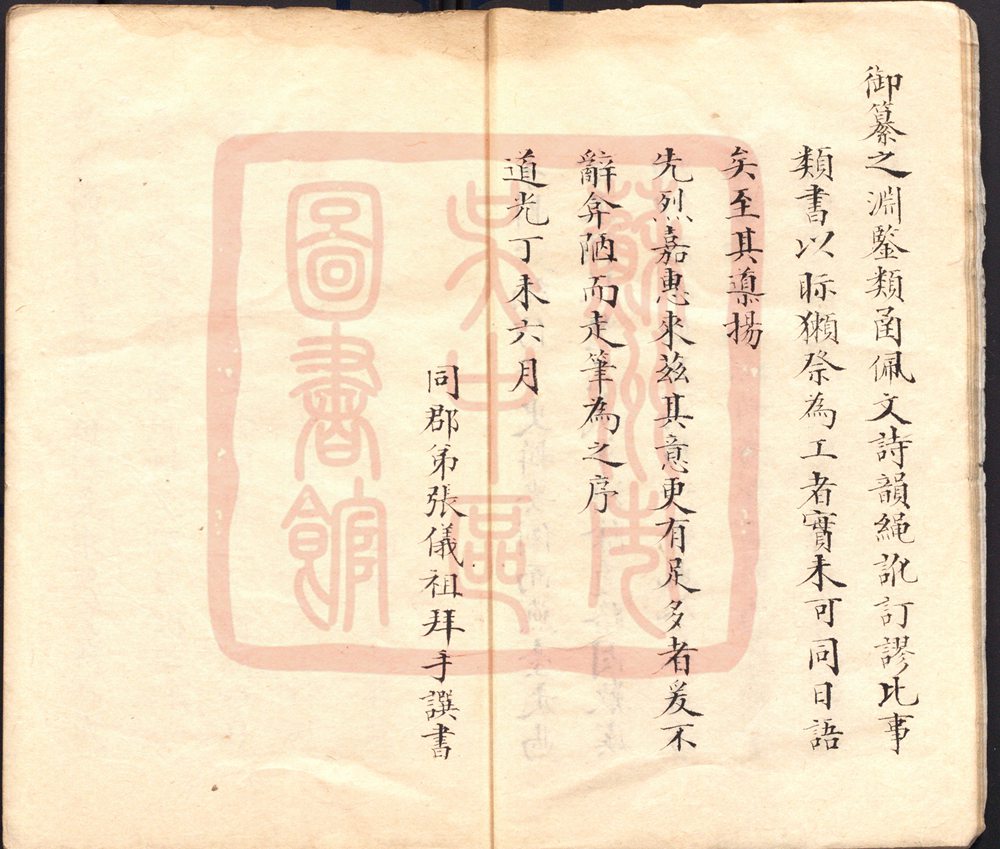 御纂之淵鑒類函佩文詩韻繩訛訂謬比事
類書以眎獺祭為工者實未可同日語
矣至其導揚
先烈嘉惠來兹其意更有足多者爰不
辭弇陋而走筆為之序
道光丁未六月
同郡弟張儀祖拜手譔書
蘇州市
吴中區
圖書館